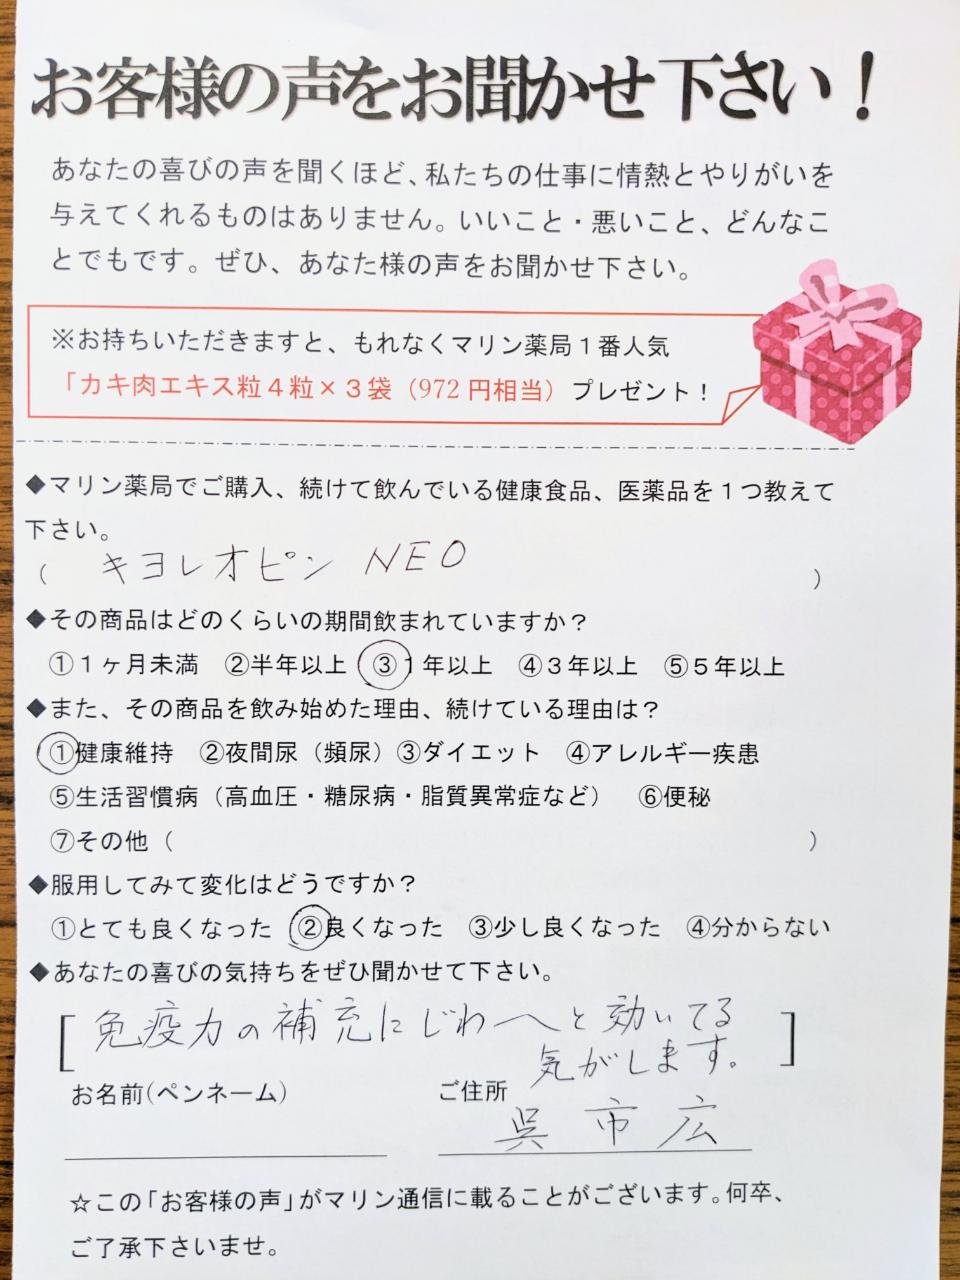 お客様の声をお聞かせ下さい！
あなたの喜びの声を聞くほど、私たちの仕事に情熱とやりがいを
与えてくれるものはありません。いいこと・悪いこと、どんなこ
とでもです。ぜひ、あなた様の声をお聞かせ下さい。
※お持ちいただきますと、もれなくマリン薬局１番人気
「カキ肉エキス粒４粒×３袋（972円相当）プレゼント！
◆マリン薬局でご購入、続けて飲んでいる健康食品、医薬品を１つ教えて
下さい。
（ キヨレオピン NEO ）
◆その商品はどのくらいの期間飲まれていますか？
①１ヶ月未満 ②半年以上 ③１年以上 ④３年以上 ⑤５年以上
◆また、その商品を飲み始めた理由、続けている理由は？
①健康維持 ②夜間尿（頻尿）③ダイエット ④アレルギー疾患
⑤生活習慣病（高血圧・糖尿病・脂質異常症など） ⑥便秘
⑦その他（ ）
◆服用してみて変化はどうですか？
①とても良くなった ②良くなった ③少し良くなった ④分からない
◆あなたの喜びの気持ちをぜひ聞かせて下さい。
[ 免疫力の補充にじわへと効いてる ]
気がします。
お名前(ペンネーム) ご住所
呉市広
☆この「お客様の声」がマリン通信に載ることがございます。何卒、
ご了承下さいませ。